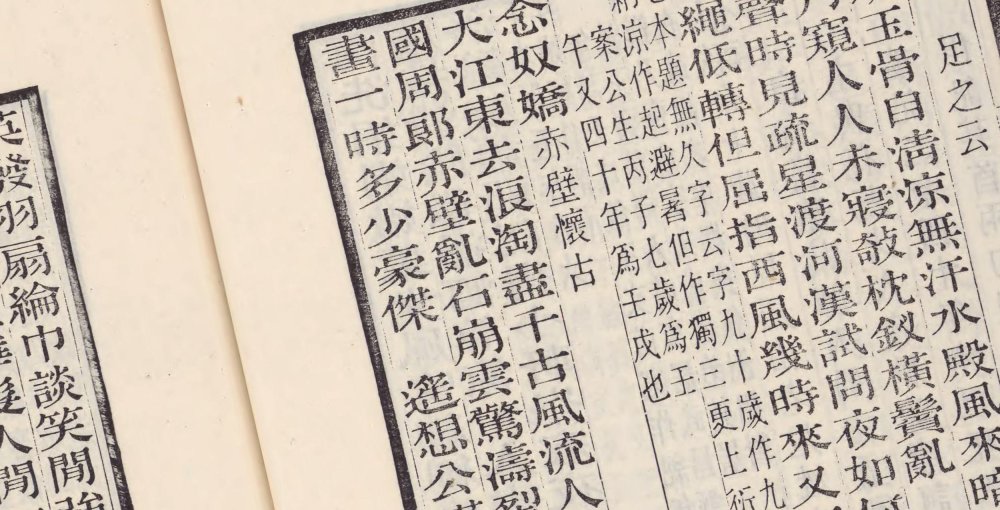 足之云
玉骨自淸涼無汗水殿風來暗
窺人人未寢攲枕釵橫鬢亂
聲時見疏星渡河漢試問夜如何
繩低轉但屈指西風幾時來又
本題無久字云字九十歲作九
涼作起避暑但作獨三更上衍
案公生丙子七歲爲壬
午又四十年爲壬戌也
念奴嬌赤壁懷古
大江東去浪淘盡千古風流人
國周郞赤壁亂石崩雲驚濤裂
畫一時多少豪傑 遙想公
英發羽扇綸巾談笑閒強
髮人閒